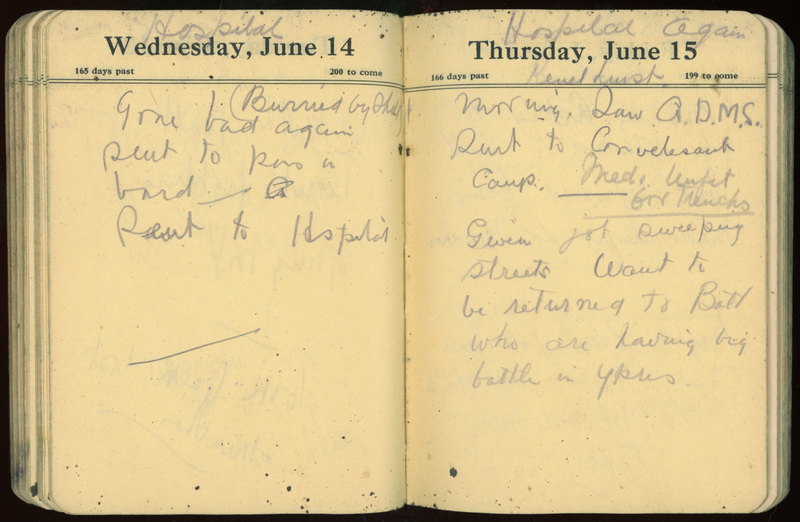 Hospital
Wednesday, June 14
165 days past 200 to come
Gone (Burried by
bad again
sent to pass a
bord
Sent to Hospital
Hospital again
Thursday, June 15
166 days past 199 to come
Morning. Saw A.D.M.S.
Sent to Convelesant
Camp. Med. Unfit
for Trenchs
Given job sweeping
streets Want to
be returned to Batt
who are having big
battle in Ypres